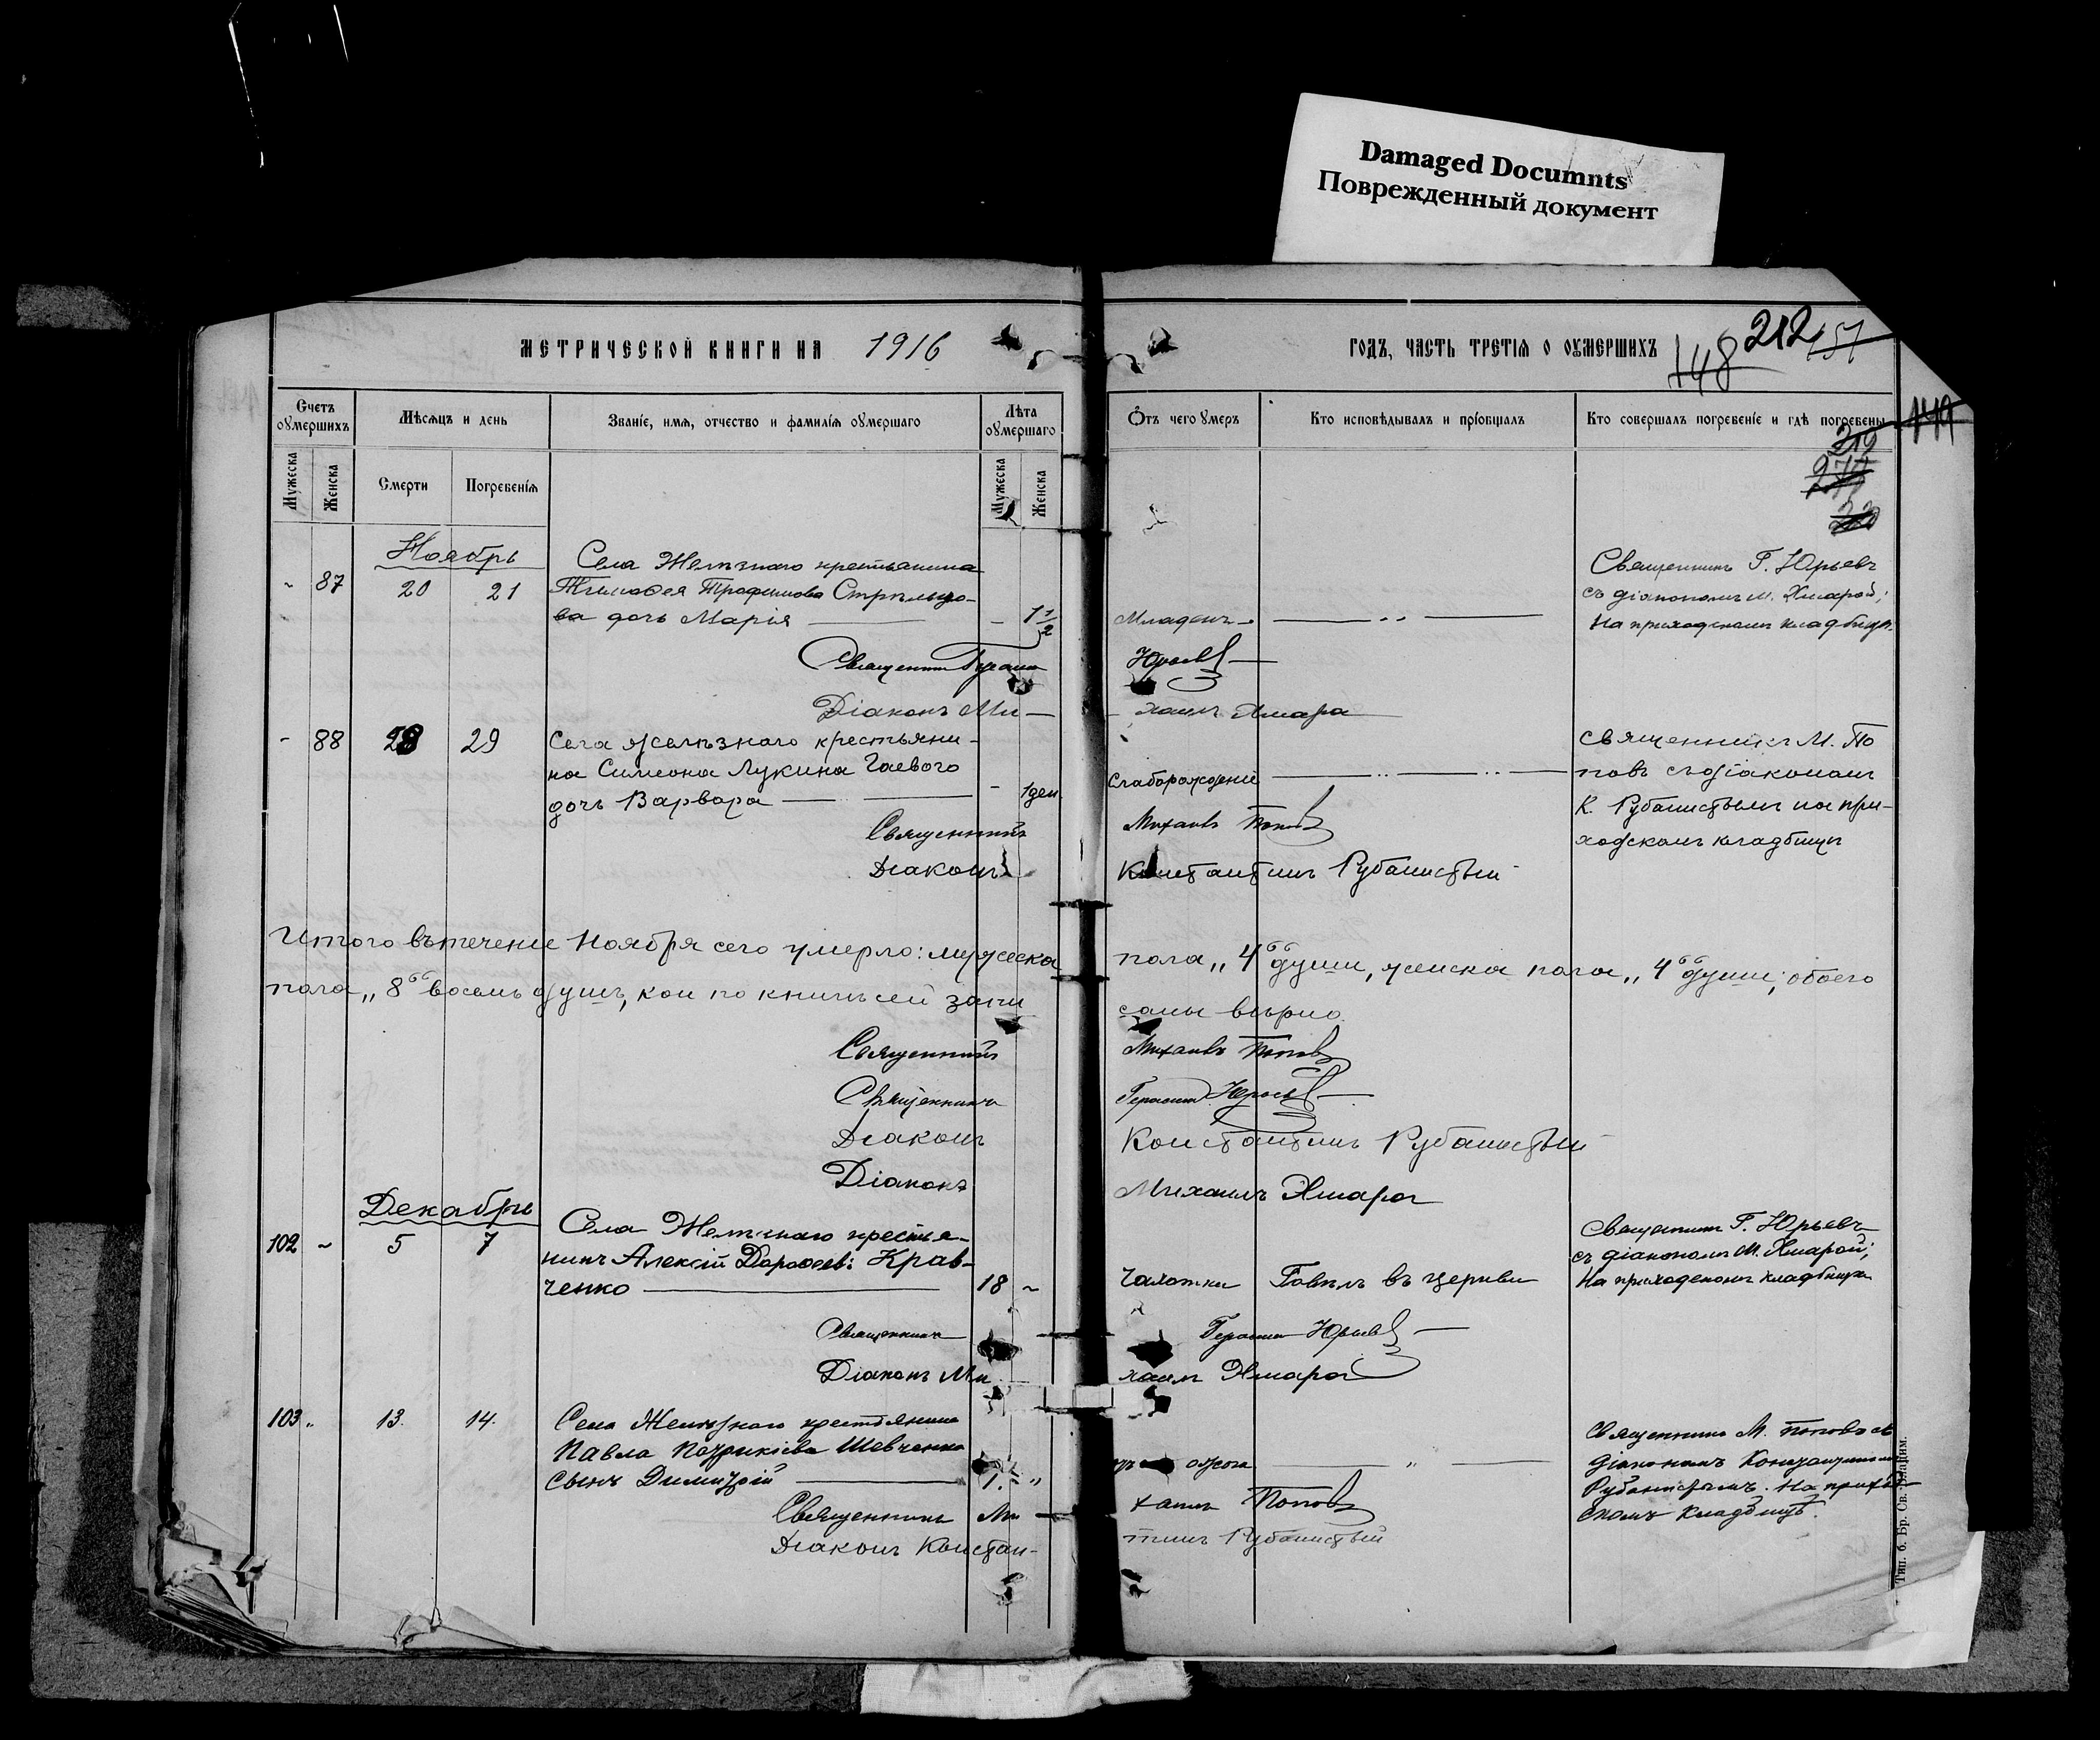 Damaged Documnts
Поврежденный документ
МЕТРИЧЕСКОЙ КНИГИ НА 1916
ГОДЪ, ЧАСТЬ ТРЕТІЯ О ОУМЕРШИХЪ
212
148
157
149
Счетъ оумершихъ
Мѣсяцъ и день
Званіе, имя, отчество и фамилія оумершаго
Лѣта оумершаго
Отъ чего умеръ
Кто исповѣдывалъ и пріобщалъ
Кто совершалъ погребеніе и гдѣ погребены
Мужеска
Женска
Смерти
Погребенія
Мужеска
Женска
219
Ноябрь
87 20 21
Села Желѣзнаго крестьянина
Тимоѳея Трофимова Стрѣльцо-
ва дочь Марія — 1 1/2
Младен.
Священникъ Г. Юрьевъ
съ діакономъ М. Хмарой;
На приходскомъ кладбищѣ.
Священникъ Герасимъ Юрьевъ
Діаконъ Ми-
хаилъ Хмара
88 28 29
Села Желѣзнаго крестьяни-
на Симеона Лукина Гаевого
дочь Варвара — 1 ден.
Слаборожденіе
Священникъ М. По
повъ съ діакономъ
К. Рубанистымъ на при-
ходскомъ кладбищѣ
Священникъ Михаилъ Поповъ
Діаконъ Константинъ Рубанистый
Итого въ теченіе Ноября сего умерло: мужеска
пола „4“ души, женска пола „4“ души; обоего
пола „8“ восемь душъ, кои по книгѣ сей запи
саны вѣрно.
Священникъ Михаилъ Поповъ
Священникъ Герасимъ Юрьевъ
Діаконъ Константинъ Рубанистый
Діаконъ Михаилъ Хмара
Декабрь
102 5 7
Села Желѣзнаго крестья-
нинъ Алексій Дороѳеевъ Крав-
ченко — 18
Чахотки
Говѣлъ въ церкви
Священникъ Г. Юрьевъ
съ діакономъ М. Хмарой;
На приходскомъ кладбищѣ
Священникъ Герасимъ Юрьевъ
Діаконъ Ми
хаилъ Хмара
103 13. 14.
Села Желѣзнаго крестьянина
Павла Патрикіева Шевченка
сынъ Димитрій — 1.
ожога
Священникъ М. Поповъ съ
діакономъ Константиномъ
Рубанистымъ. На приход
скомъ кладбищѣ.
Священникъ Ми
хаилъ Поповъ
Діаконъ Констан-
тинъ Рубанистый
Тип. б. Бр. Св. Владим.